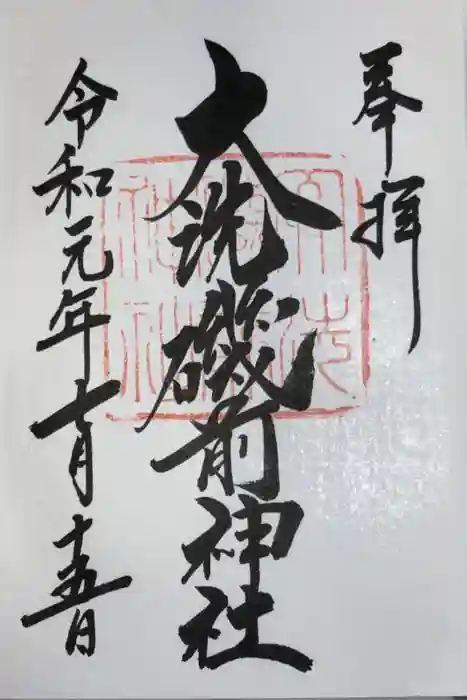 奉拝
大洗磯前神社
令和元年七月十五日